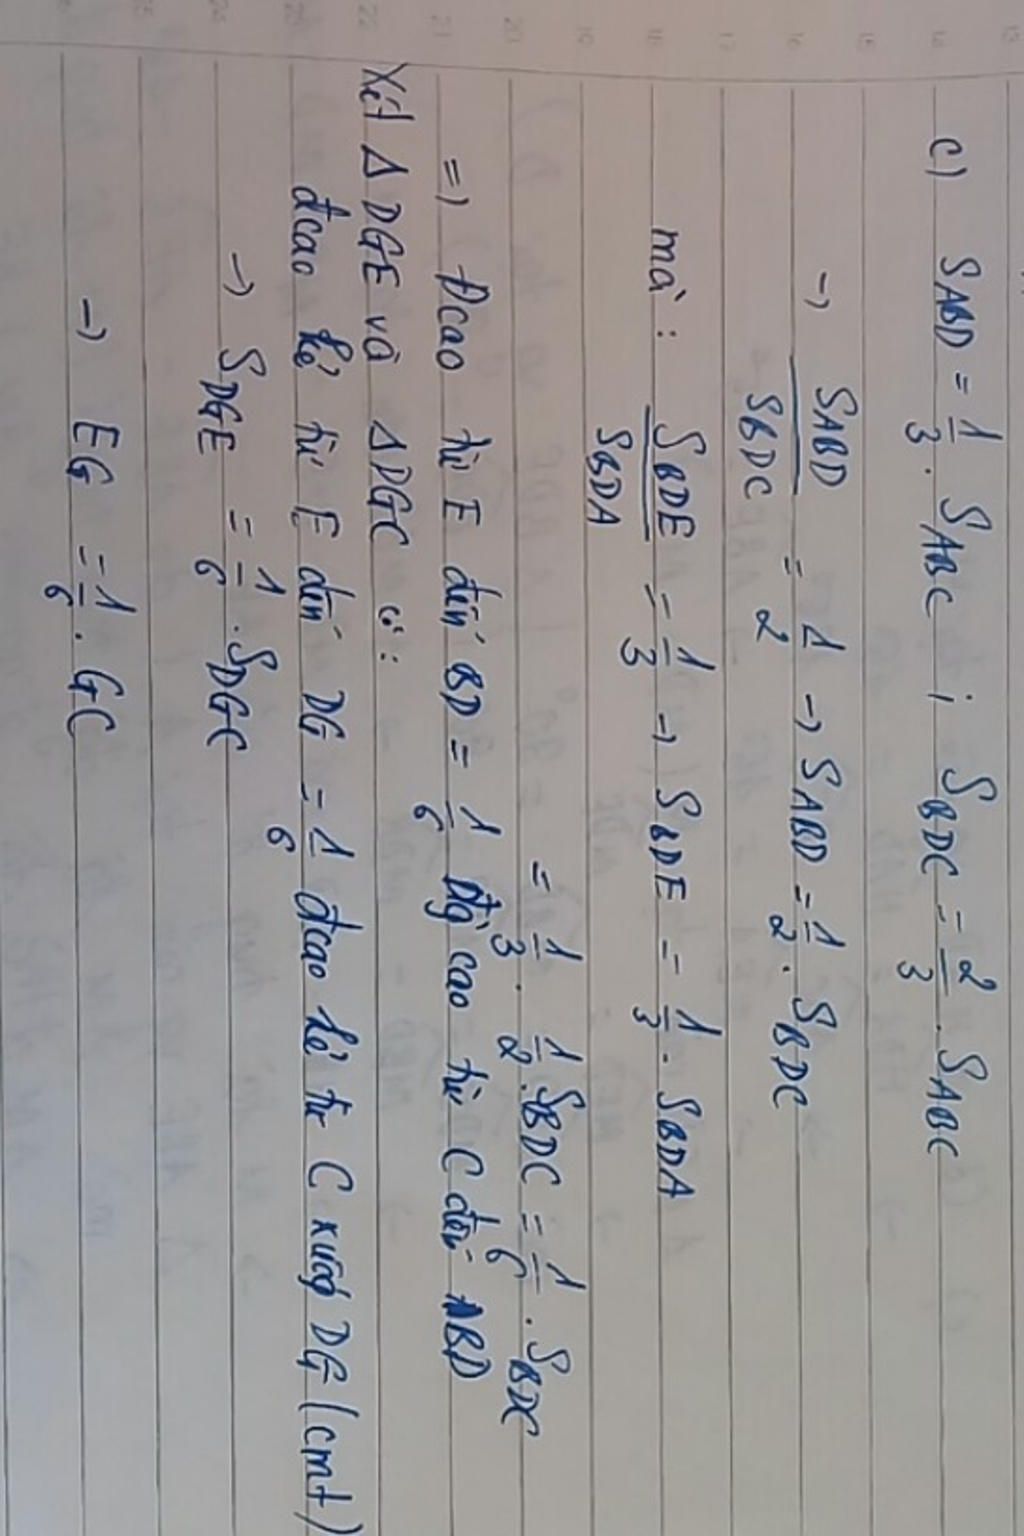 c) S_ABD = 1/3 . S_ABC ; S_BDC = 2/3 . S_ABC
→ S_ABD/S_BDC = 1/2 → S_ABD = 1/2 . S_BDC
mà : S_BDE/S_BDA = 1/3 → S_BDE = 1/3 . S_BDA
= 1/3 . 1/2 . S_BDC = 1/6 . S_BDC
=) Đcao từ E đến BD = 1/6 đg cao từ C đến BD
Xét Δ DGE và Δ DGC có :
đcao kẻ từ E đến DG = 1/6 đcao kẻ từ C xuống DG (cmt)
→ S_DGE = 1/6 . S_DGC
→ EG = 1/6 . GC